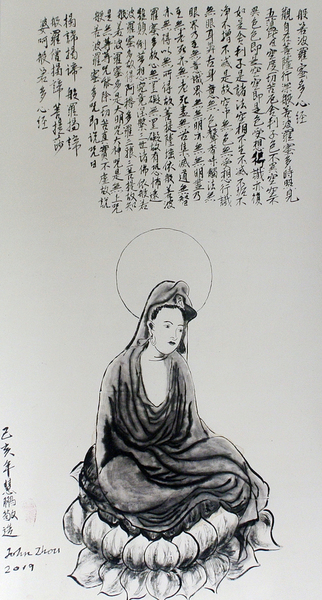 般若波羅蜜多心經
觀自在菩薩行深般若波羅蜜多時照見
五蘊皆空度一切苦厄舍利子色不異空空不
異色色即是空空即是色受想行識亦復
如是舍利子是諸法空相不生不滅不垢不
淨不增不減是故空中無色無受想行識
無眼耳鼻舌身意無色聲香味觸法無
眼界乃至無意識界無無明盡乃
至無老死亦無老死盡無苦集滅道無智
亦無得以無所得故菩提薩埵依般若波
羅蜜多故心無罣礙無罣礙故無有恐怖遠
離顛倒夢想究竟涅槃三世諸佛依般若
波羅蜜多故得阿耨多羅三藐三菩提故知
般若波羅蜜多是大神咒是大明咒是無上咒
是無等等咒能除一切苦真實不虛故說
般若波羅蜜多咒即說咒曰
揭諦揭諦 般羅揭諦
般羅僧揭諦 菩提
婆呵 般若多心經
己亥年慧鵬敬造
John Zhou
2019